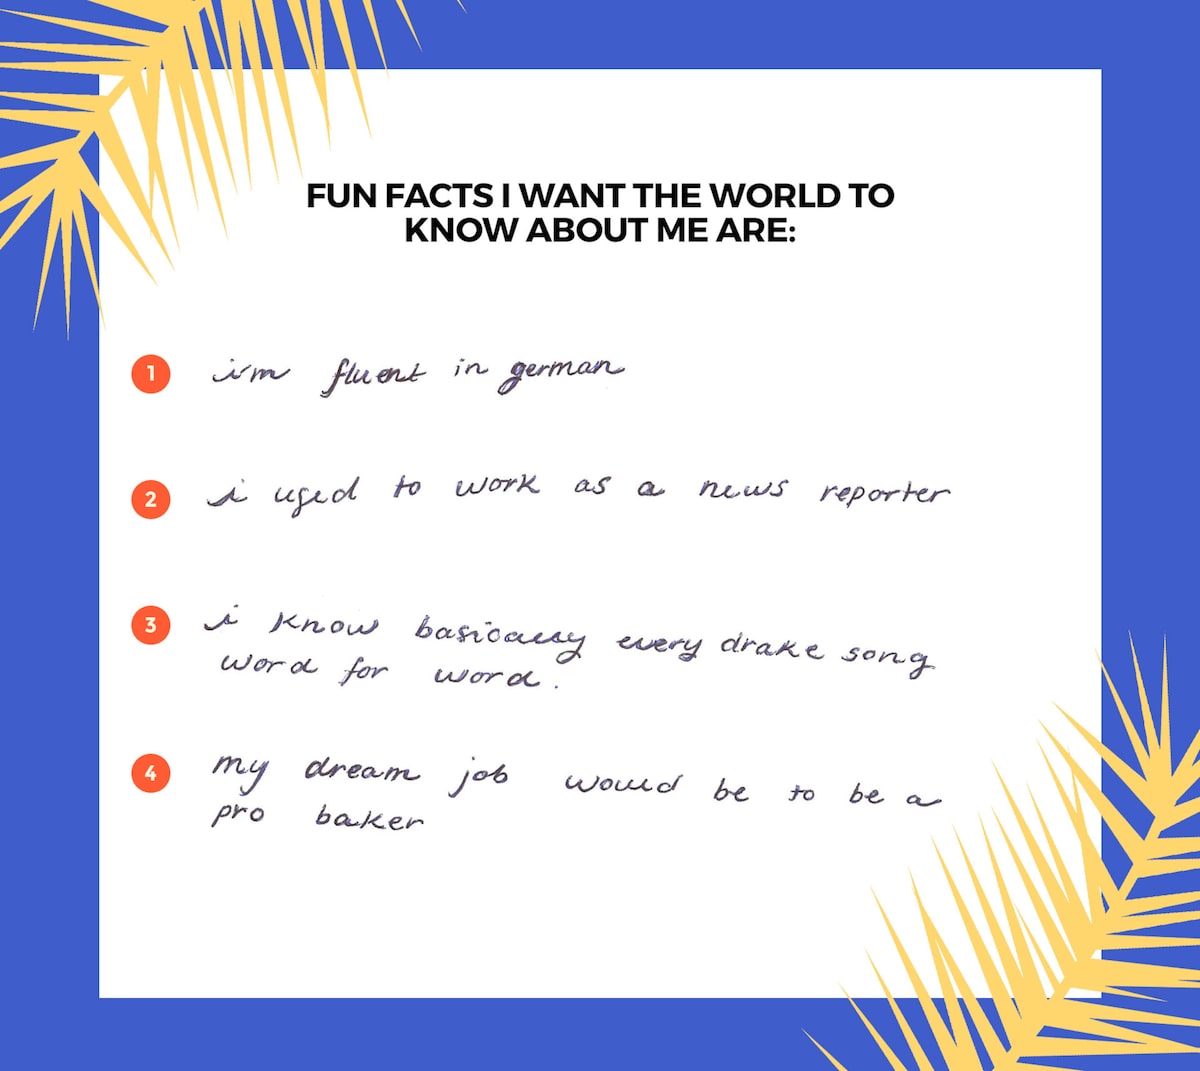 FUN FACTS I WANT THE WORLD TO
KNOW ABOUT ME ARE:
1 i'm fluent in german
2 i used to work as a news reporter
3 i know basically every drake song
word for word.
4 my dream job would be to be a
pro baker